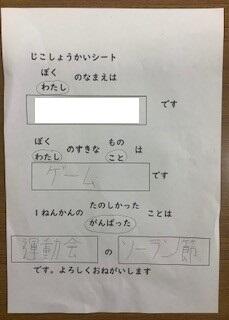 じこしょうかいシート
ぼく
わたし のなまえは
です
ぼく もの
わたし のすきな こと は
ゲーム です
たのしかった
1ねんかんの がんばった ことは
運動会 の ソーラン節
です。よろしくおねがいします